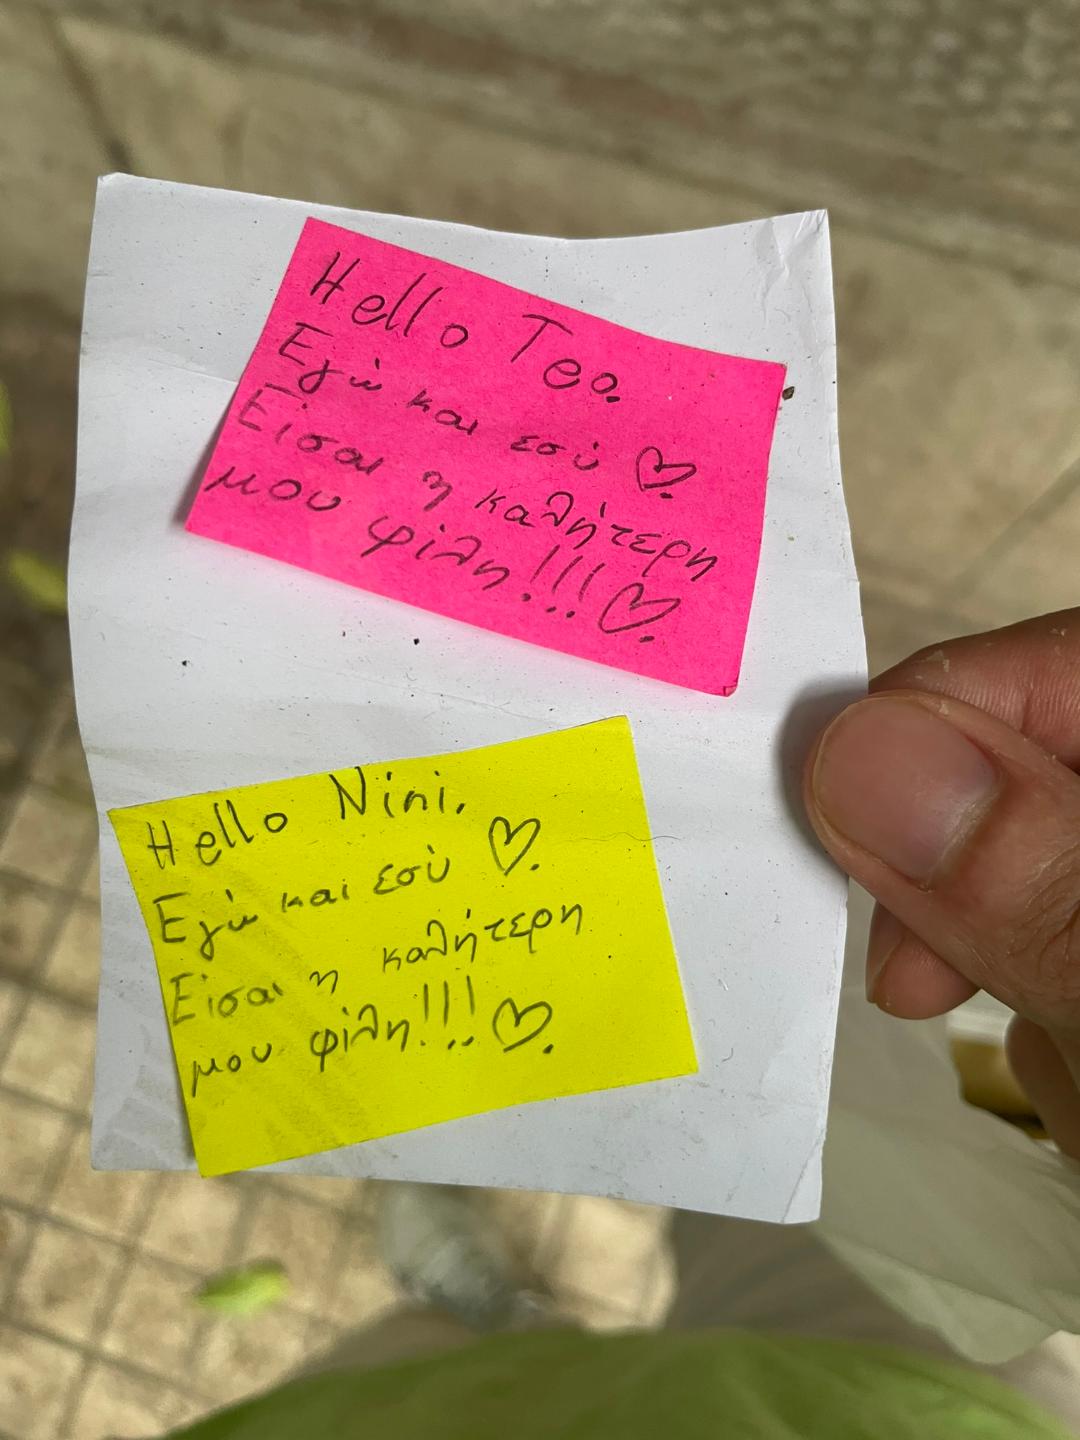 Hello Teo.
Εγώ και εσύ ♡.
Είσαι η καλήτερη
μου φίλη!!!♡.
Hello Nini.
Εγώ και εσύ ♡.
Είσαι η καλήτερη
μου φίλη!!!♡.